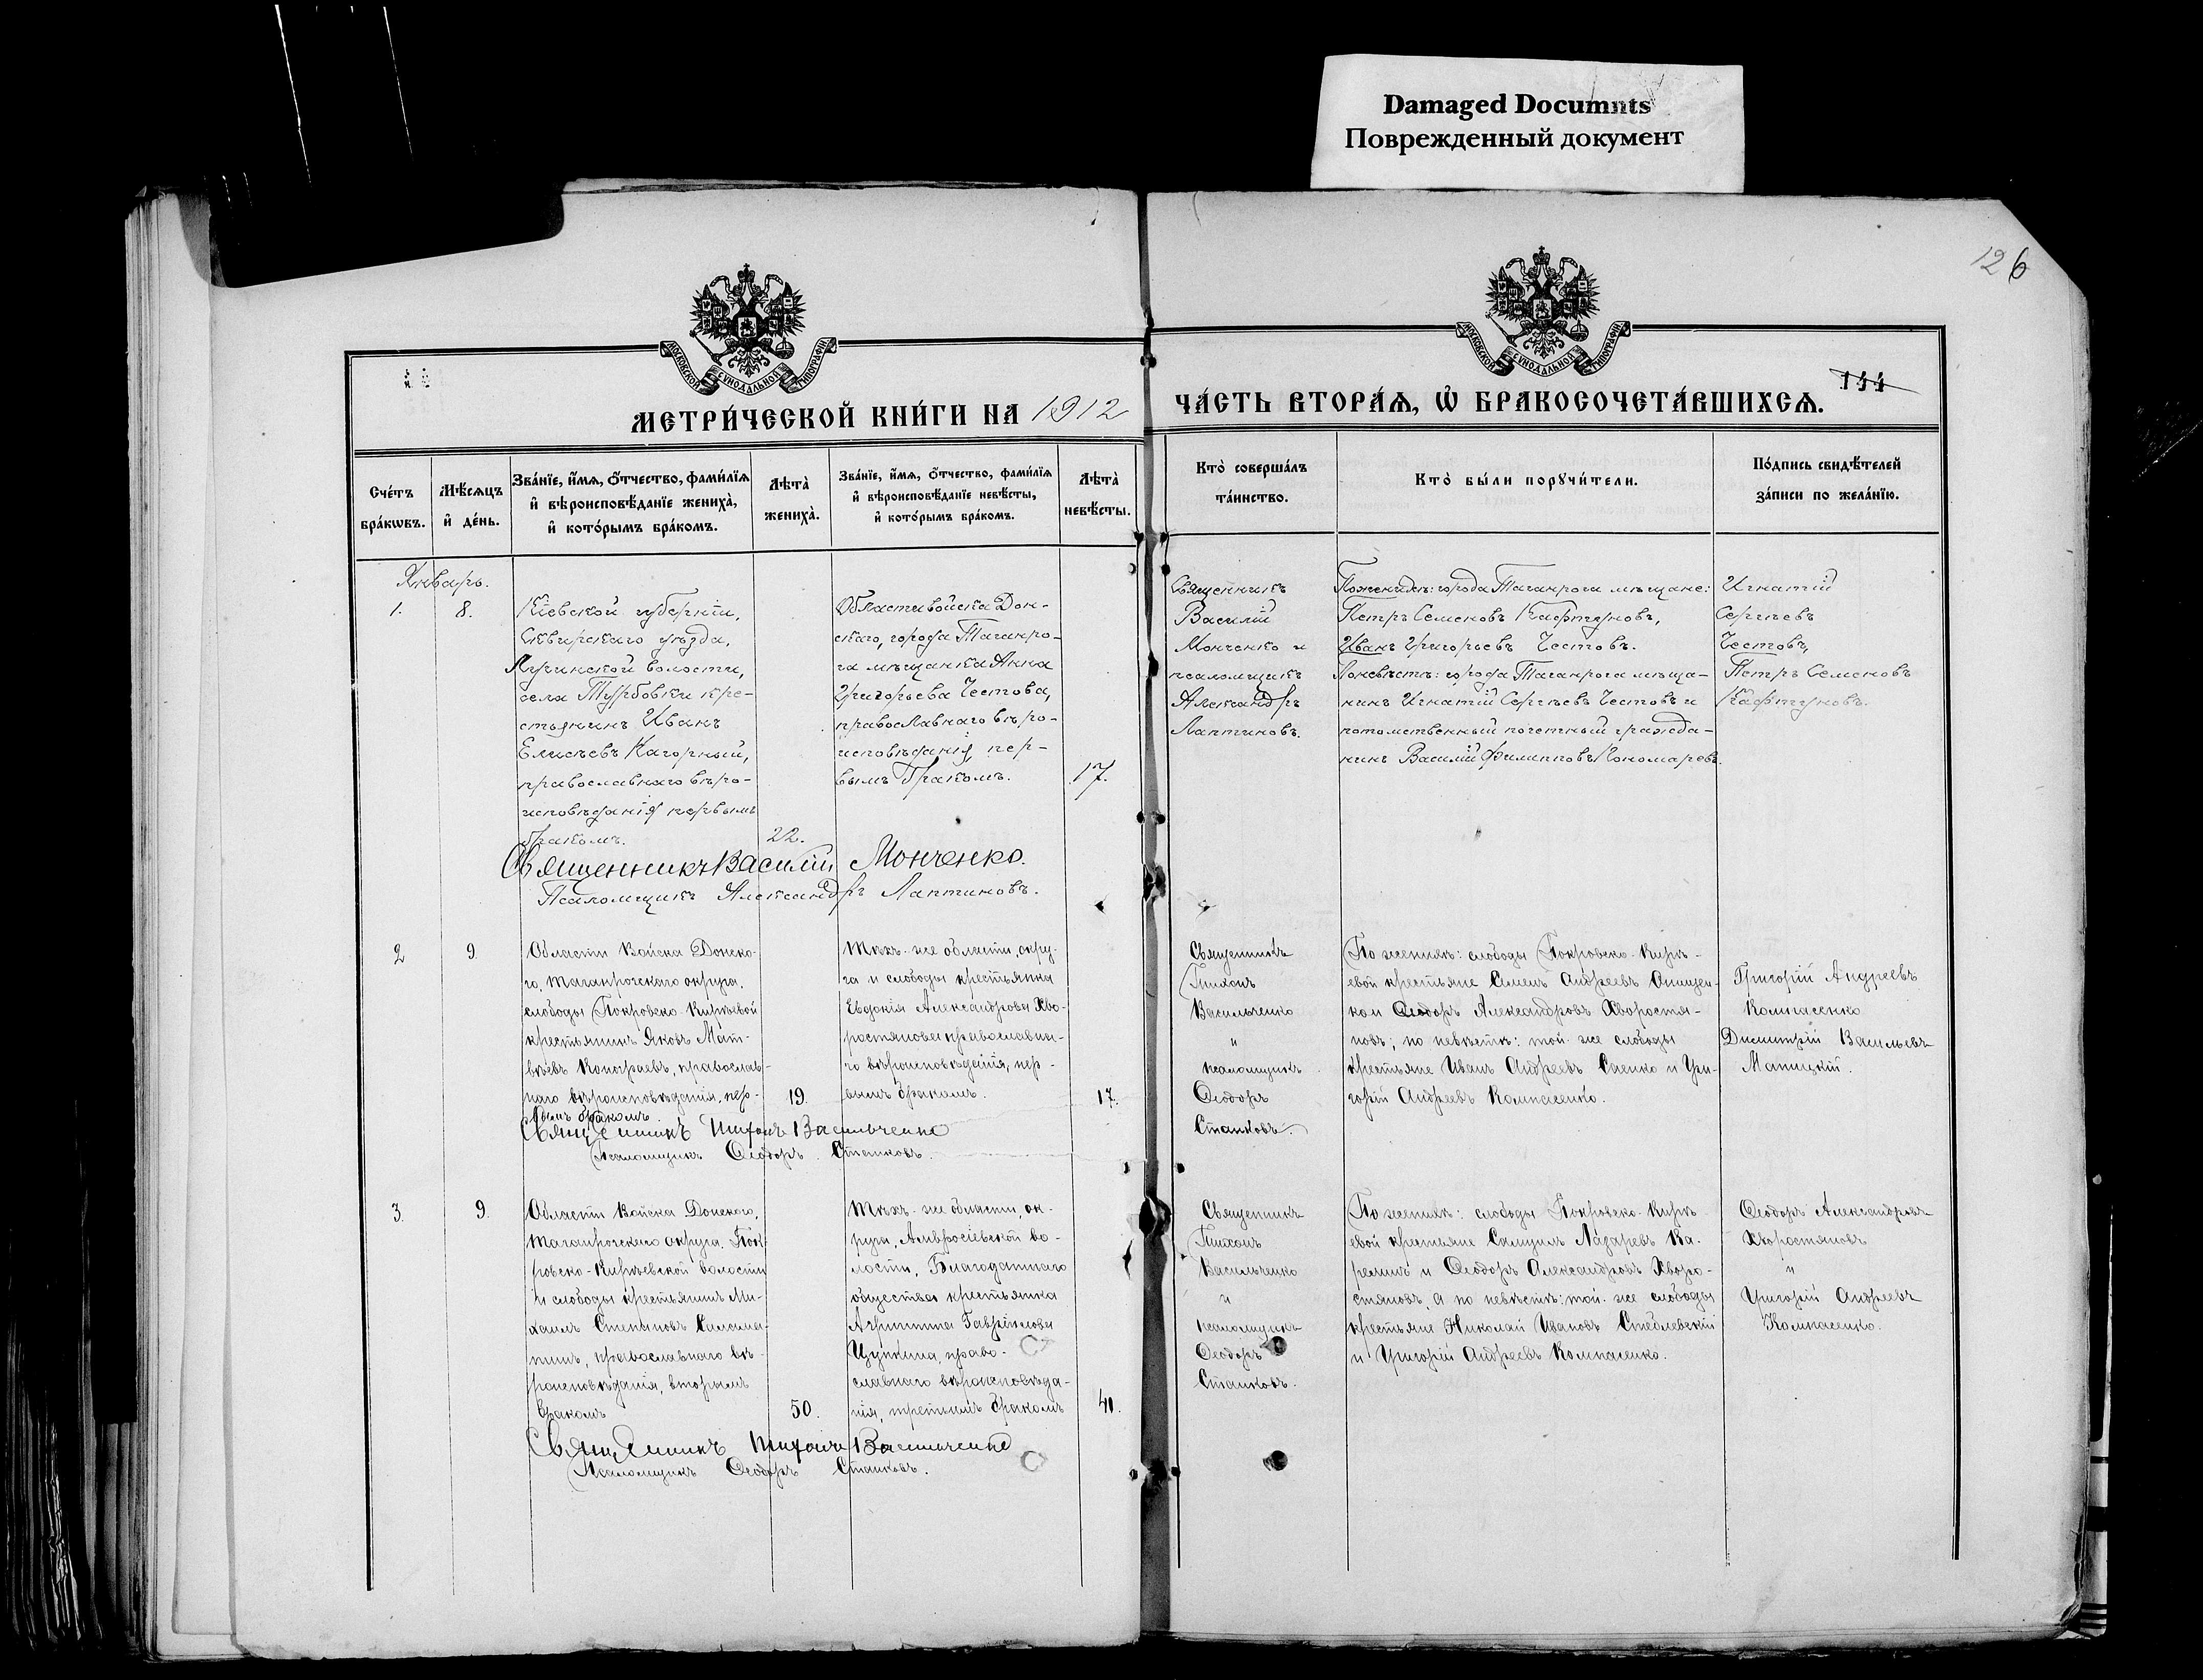 Damaged Documnts
Поврежденный документ
126
МОСКОВСКОЙ СУНОДАЛЬНОЙ ТИПОГРАФІИ
МОСКОВСКОЙ СУНОДАЛЬНОЙ ТИПОГРАФІИ
144
МЕТРИ́ЧЕСКОЙ КНИ́ГИ НА 1912
ЧА́СТЬ ВТОРА́Ѧ, Ѡ҆ БРАКОСОЧЕТА́ВШИХСѦ.
Сче́тъ
бра́кѡвъ.
Мѣ́сѧцъ
и҆ де́нь.
Зва́нїе, и҆́мѧ, ѻ҆́тчество, фами́лїѧ
и҆ вѣроисповѣ́данїе жениха̀,
и҆ кото́рымъ бра́комъ.
Лѣта̀
жениха̀.
Зва́нїе, и҆́мѧ, ѻ҆́тчество, фами́лїѧ
и҆ вѣроисповѣ́данїе невѣ́сты,
и҆ кото́рымъ бра́комъ.
Лѣта̀
невѣ́сты.
Кто̀ соверша́лъ
та́инство.
Кто̀ бы́ли порꙋчи́тели.
По́дпись свидѣ́телей
за́писи по жела́нїю.
Январь.
1.
8.
Кіевской губерніи,
Сквирскаго уѣзда,
волости,
села Турбовки кре-
стьянинъ Иванъ
Елисѣевъ Нагорный,
православнаго вѣро-
исповѣданія первымъ
бракомъ.
22.
Области войска Дон-
скаго, города Таганро-
га мѣщанка Анна
Григорьева Честова,
православнаго вѣро-
исповѣданія, пер-
вымъ бракомъ.
17.
Священникъ
Василій
Монченко и
псаломщикъ
Александръ
Лаптиновъ.
По женихѣ: города Таганрога мѣщане:
Петръ Семеновъ Кафтуновъ,
Иванъ Григорьевъ Честовъ.
По невѣстѣ: города Таганрога мѣща-
нинъ Игнатій Сергѣевъ Честовъ и
потомственный почетный гражда-
нинъ Василій Филипповъ Пономаревъ.
Игнатій
Сергѣевъ
Честовъ,
Петръ Семеновъ
Кафтуновъ.
Священникъ Василій Монченко.
Псаломщикъ Александръ Лаптиновъ.
2
9.
Области Войска Донско-
го, Таганрогскаго округа,
слободы Покровско-Кирѣевой
крестьянинъ Яковъ Мат-
вѣевъ православ-
наго вѣроисповѣданія, пер-
вымъ бракомъ.
19.
Тѣхъ-же области, окру-
га и слободы крестьянка
Евдокія Александрова Хво-
ростянова православна-
го вѣроисповѣданія, пер-
вымъ бракомъ.
17.
Священникъ
Тихонъ
Васильченко
и
псаломщикъ
Ѳеодоръ
Станковъ.
По женихѣ: слободы Покровско-Кирѣ-
евой крестьяне Симеонъ Андреевъ Онищен-
ко и Ѳеодоръ Александровъ Хворостя-
новъ; по невѣстѣ: той-же слободы
крестьяне Иванъ Андреевъ Саенко и Гри-
горій Андреевъ Компасенко.
Григорій Андреевъ
Компасенко
Димитрій Васильевъ
Священникъ Тихонъ Васильченко
Псаломщикъ Ѳеодоръ Станковъ.
3.
9.
Области Войска Донского,
Таганрогскаго округа, Пок-
ровско-Кирѣевской волости
и слободы крестьянинъ Ми-
хаилъ Стефановъ
православнаго вѣ-
роисповѣданія, вторымъ
бракомъ
50.
Тѣхъ-же области, ок-
руга, Амвросіевской во-
лости, Благодатнаго
общества крестьянка
Агриппина Гавріилова
Цупкина, право-
славнаго вѣроисповѣда-
нія, третьимъ бракомъ
41.
Священникъ
Тихонъ
Васильченко
и
псаломщикъ
Ѳеодоръ
Станковъ.
По женихѣ: слободы Покровско-Кирѣ-
евой крестьяне Самуилъ Лазаревъ Ка-
релинъ и Ѳеодоръ Александровъ Хворо-
стяновъ, а по невѣстѣ: той-же слободы
крестьяне Николай Ивановъ Стеблевскій
и Григорій Андреевъ Компасенко.
Ѳеодоръ Александровъ
Хворостяновъ
и
Григорій Андреевъ
Компасенко.
Священникъ Тихонъ Васильченко
Псаломщикъ Ѳеодоръ Станковъ.